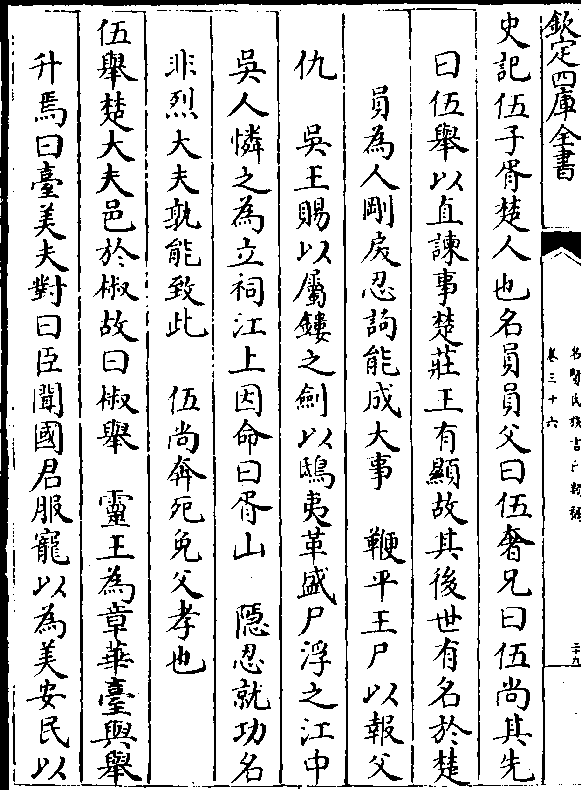 欽定四庫全書
名賢氏族言行類稿
卷三十六
三十九
史記伍子胥楚人也名員員父曰伍奢兄曰伍尚其先
曰伍舉以直諫事楚莊王有顯故其後世有名於楚
員為人剛戾忍訽能成大事　鞭平王尸以報父
仇　吳王賜以屬鏤之劍以鴟夷革盛尸浮之江中
吳人憐之為立祠江上因命曰胥山　隱忍就功名
非烈大夫孰能致此　伍尚奔死免父孝也
伍舉楚大夫邑於椒故曰椒舉　靈王為章華臺與舉
升焉曰臺美夫對曰臣聞國君服寵以為美安民以